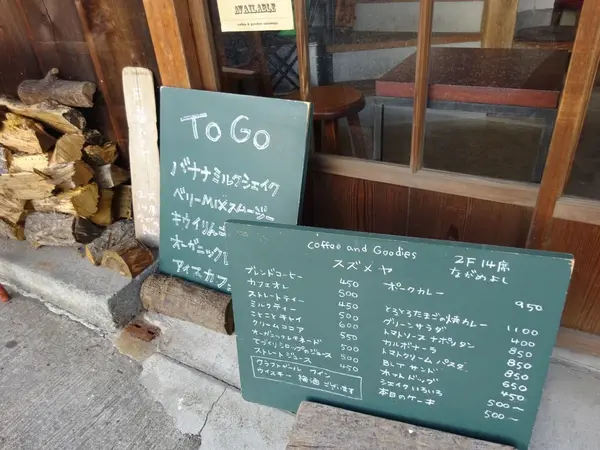 AVAILABLE
To Go
バナナミルクシェイク
ベリーMIXスムージー
キウイりんご
オーガニック
アイスカフ
Coffee and Goodies
スズメヤ
2F 14席
ながめよし
ブレンドコーヒー 450
カフェオレ 500
ストレートティー 450
ミルクティー 500
ことことチャイ 500
クリームココア 600
オーガニックレモネード 550
てづくりシロップのジュース 500
ストレートジュース 450
クラフトビール ワイン
ウイスキー 梅酒 ございます
ポークカレー 950
とろとろたまごの焼カレー 1100
グリーンサラダ 400
トマトソース ナポリタン 850
カルボナーラ 850
トマトクリーム パスタ 850
BLTサンド 650
ホットドッグ 450
シェイクいろいろ 500〜
本日のケーキ 500〜